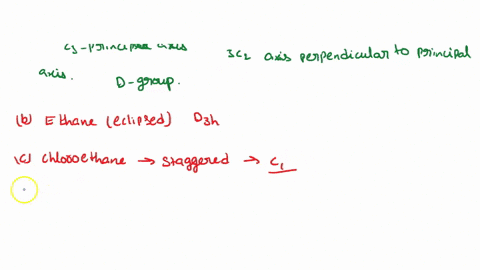 C3-principle axis 3C2 axis perpendicular to principal
axis. D-group.
(b) Ethane (eclipsed) D3h
(c) chloroethane → staggered → C1